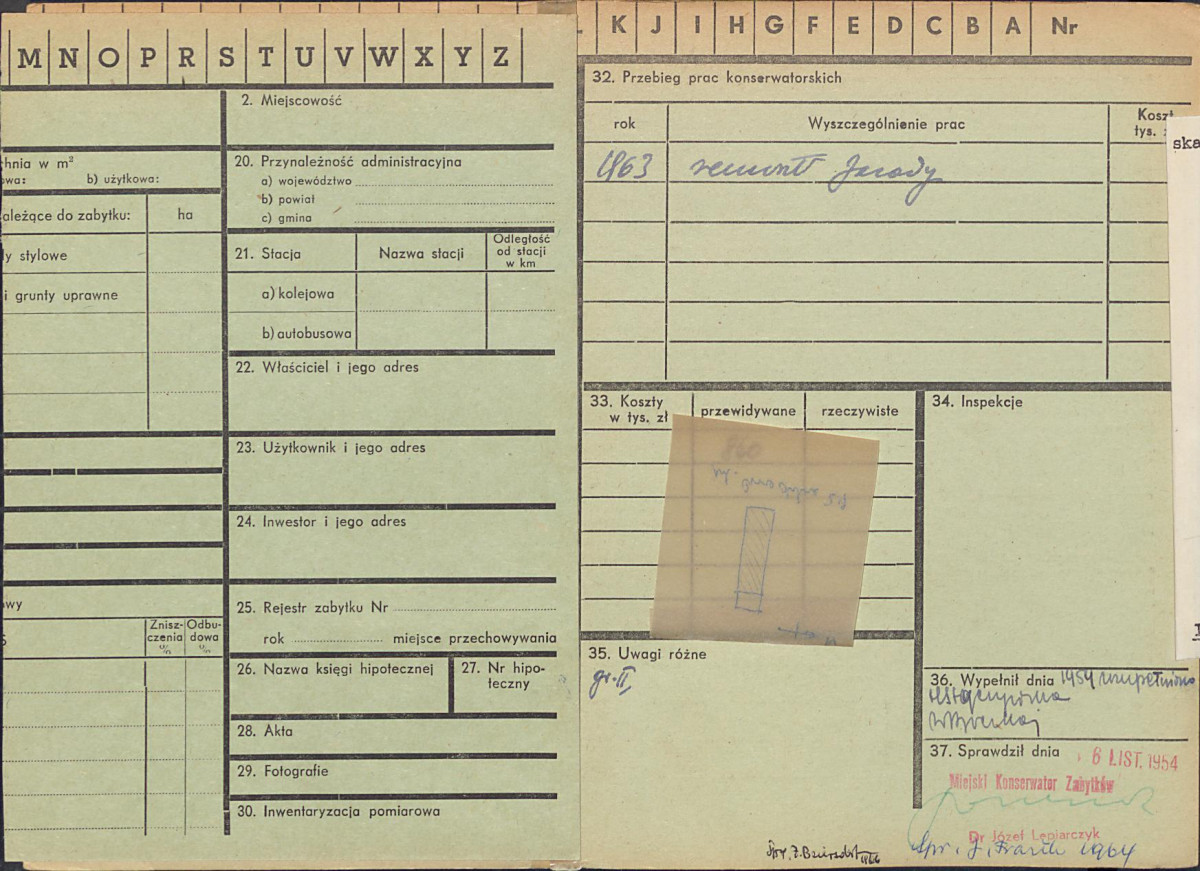 M N O P R S T U V W X Y Z
2. Miejscowość
hnia w m²
owa: b) użytkowa:
20. Przynależność administracyjna
a) województwo
b) powiat
c) gmina
ależące do zabytku: ha
y stylowe
i grunty uprawne
21. Stacja Nazwa stacji Odległość
od stacji
w km
a) kolejowa
b) autobusowa
22. Właściciel i jego adres
23. Użytkownik i jego adres
24. Inwestor i jego adres
25. Rejestr zabytku Nr
rok miejsce przechowywania
awy
Znisz-
czenia
%
Odbu-
dowa
%
26. Nazwa księgi hipotecznej
27. Nr hipo-
teczny
28. Akta
29. Fotografie
30. Inwentaryzacja pomiarowa
L K J I H G F E D C B A Nr
32. Przebieg prac konserwatorskich
rok Wyszczególnienie prac Koszt
tys. z
1963 remont fasady
ska
33. Koszty
w tys. zł
przewidywane rzeczywiste
34. Inspekcje
35. Uwagi różne
gr. II
36. Wypełnił dnia 1954
37. Sprawdził dnia 6 LIST. 1954
Miejski Konserwator Zabytków
Dr Józef Lepiarczyk
Spr. J. 1964